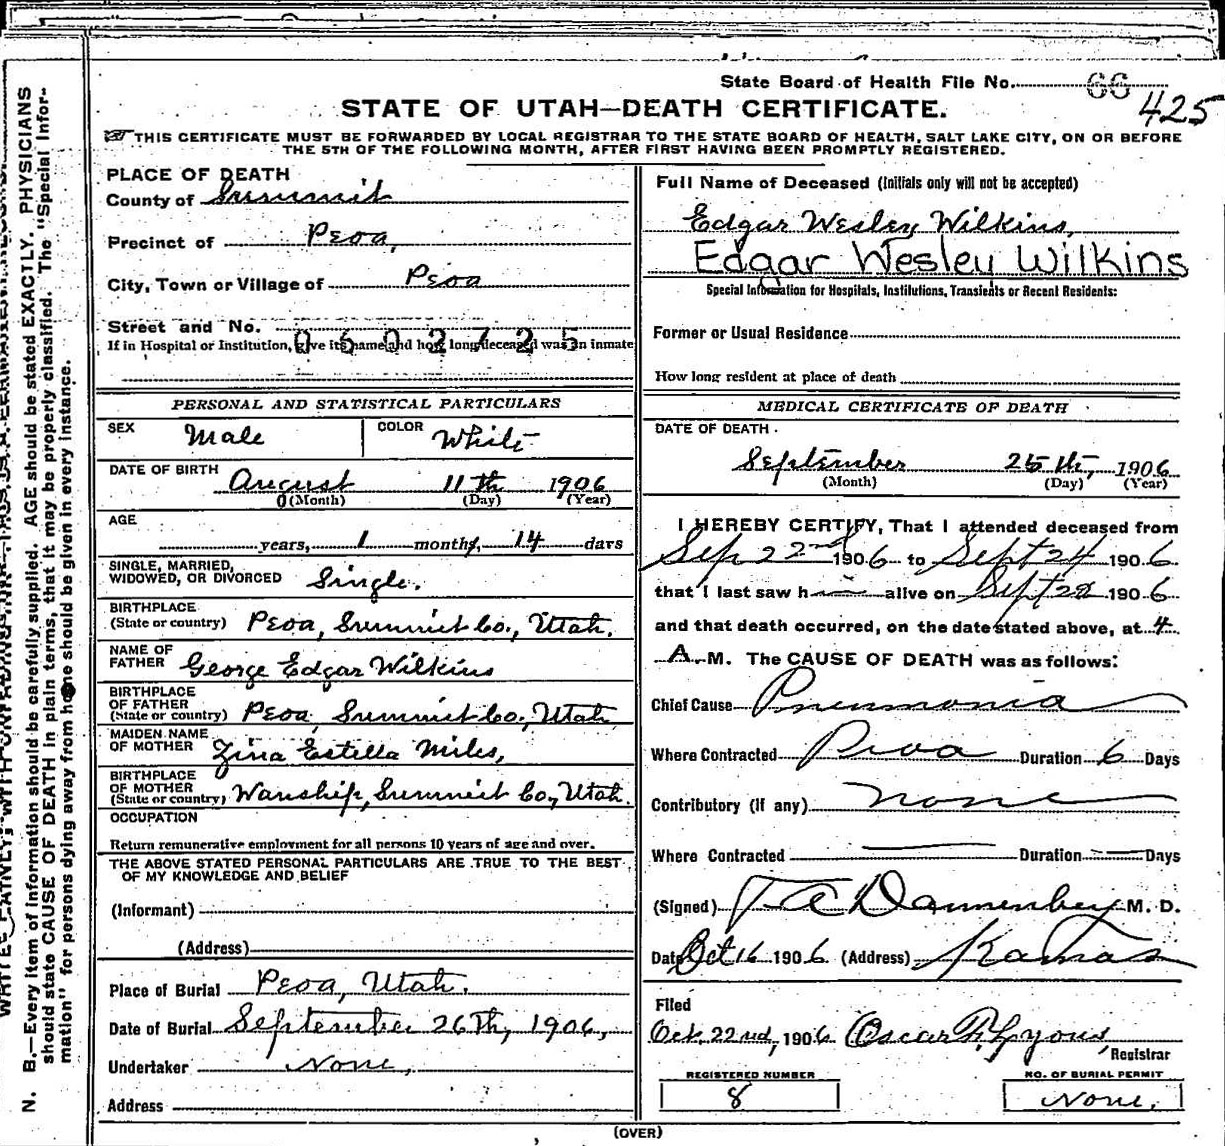 State Board of Health File No. 66
425
STATE OF UTAH—DEATH CERTIFICATE.
THIS CERTIFICATE MUST BE FORWARDED BY LOCAL REGISTRAR TO THE STATE BOARD OF HEALTH, SALT LAKE CITY, ON OR BEFORE
THE 5TH OF THE FOLLOWING MONTH, AFTER FIRST HAVING BEEN PROMPTLY REGISTERED.
N. B.—Every item of information should be carefully supplied. AGE should be stated EXACTLY. PHYSICIANS
should state CAUSE OF DEATH in plain terms, that it may be properly classified. The "Special Infor-
mation" for persons dying away from home should be given in every instance.
PLACE OF DEATH
County of Summit
Precinct of Peoa,
City, Town or Village of Peoa
Street and No.
0602725
If in Hospital or Institution, give its name and how long deceased was an inmate
PERSONAL AND STATISTICAL PARTICULARS
SEX Male COLOR White
DATE OF BIRTH
August 11th 1906
(Month) (Day) (Year)
AGE
years, 1 months, 14 days
SINGLE, MARRIED,
WIDOWED, OR DIVORCED Single.
BIRTHPLACE
(State or country) Peoa, Summit Co., Utah.
NAME OF
FATHER George Edgar Wilkins
BIRTHPLACE
OF FATHER
(State or country) Peoa, Summit Co., Utah
MAIDEN NAME
OF MOTHER Zina Estella Miles,
BIRTHPLACE
OF MOTHER
(State or country) Wanship, Summit Co., Utah.
OCCUPATION
Return remunerative employment for all persons 10 years of age and over.
THE ABOVE STATED PERSONAL PARTICULARS ARE TRUE TO THE BEST
OF MY KNOWLEDGE AND BELIEF
(Informant)
(Address)
Place of Burial Peoa, Utah.
Date of Burial September 26th, 1906,
Undertaker None,
Address
Full Name of Deceased (Initials only will not be accepted)
Edgar Wesley Wilkins,
Edgar Wesley Wilkins
Special Information for Hospitals, Institutions, Transients or Recent Residents:
Former or Usual Residence
How long resident at place of death
MEDICAL CERTIFICATE OF DEATH
DATE OF DEATH
September 25th, 1906
(Month) (Day) (Year)
I HEREBY CERTIFY, That I attended deceased from
Sep 22nd 1906 to Sept 24 1906
that I last saw h alive on Sept 1906
and that death occurred, on the date stated above, at 4
A. M. The CAUSE OF DEATH was as follows:
Chief Cause Pneumonia
Where Contracted Peoa Duration 6 Days
Contributory (if any) none
Where Contracted — Duration — Days
(Signed) Dannenberg M. D.
Date Oct 16 1906 (Address) Kamas
Filed
Oct. 22nd, 1906 Oscar F. Lyons,
Registrar
REGISTERED NUMBER
8
NO. OF BURIAL PERMIT
None.
(OVER)